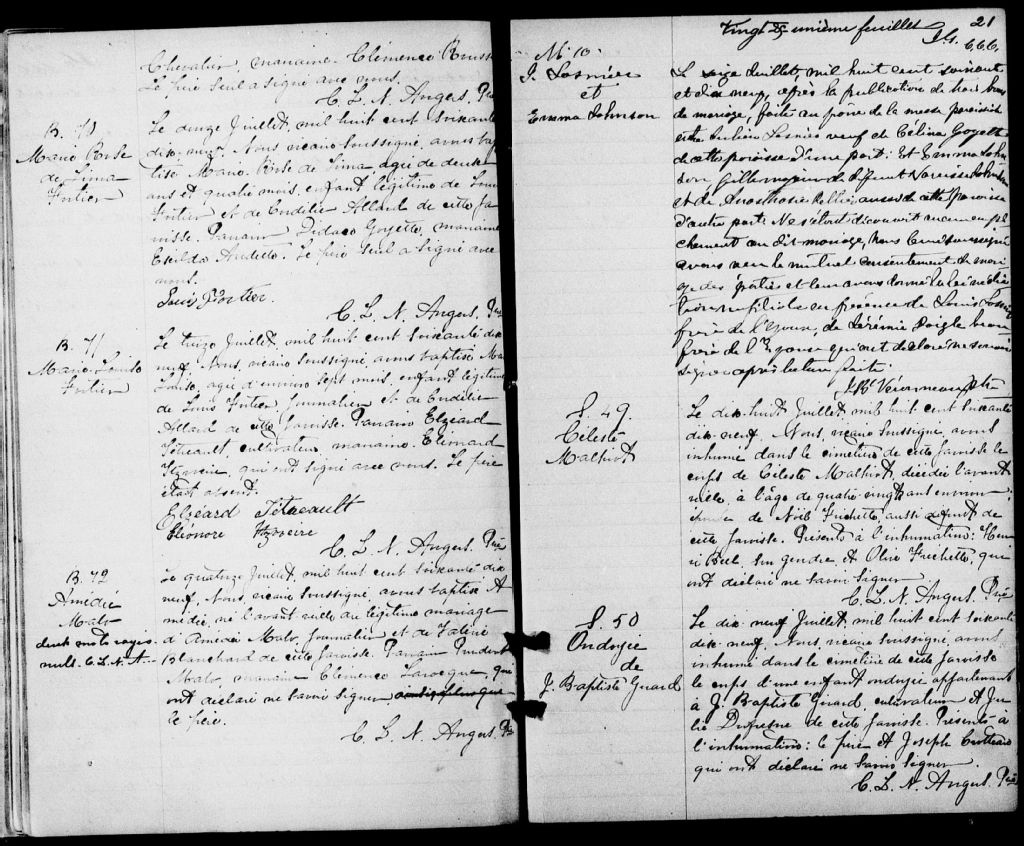 Chevalier, marraine Clémence
Le père seul a signé avec nous.
C. L. N. Angers. Ptre
B. 70
Marie Rose
de Lima
Fortier
Le douze Juillet, mil huit cent soixante
dix-neuf, Nous, vicaire soussigné, avons bap
tisé Marie Rose de Lima, agée de deux
ans et quatre mois, enfant légitime de Louis
Fortier et de Cordilie Allard de cette pa
roisse. Parrain Goyette, marraine
Exilda Audette. Le père seul a signé avec
nous.
Louis Fortier.
C. L. N. Angers. Ptre
B. 71
Marie Louise
Fortier
Le treize Juillet, mil huit cent soixante dix
neuf, Nous, vicaire soussigné, avons baptisé Ma
Louise, agée d'environ sept mois, enfant légitime
de Louis Fortier, Journalier et de Cordilie
Allard de cette paroisse. Parrain Elzéard
Tétreault, cultivateur, marraine Eléonard
qui ont signé avec nous. Le père
étant absent.
Elzéard Tétreault
Eléonore
C. L. N. Angers. Ptre
B. 72
Amédée
Malo
deux mots rayés
nuls. C. L. N. A.
Le quatorze Juillet, mil huit cent soixante dix
neuf, Nous, vicaire soussigné, avons baptisé A
médée, né l'avant veille du légitime mariage
d'Amédée Malo, Journalier et de
Blanchard de cette paroisse. Parrain Prudent
Malo, marraine Clémence Larocque, qui
ont déclaré ne savoir signer
le père.
C. L. N. Angers. Ptre
Vingt et unième feuillet
21
M. 10.
J. Losnier
et
Emma Johnson
Le seize Juillet, mil huit cent soixante
et dix neuf, après la publication de trois bans
de mariage, faite au prône de la messe paroissiale
entre Julien Losnier veuf de Célina Goyette
de cette paroisse d'une part; Et Emma John
son fille mineure de défunt Narcisse Johnson
et de aussi de cette paroisse
d'autre part: Ne s'étant découvert aucun empê
chement au dit mariage, Nous Curé soussigné
avons reçu le mutuel consentement de maria
ge des parties et leur avons donné la bénédic
tion nuptiale en présence de Louis
frère de l'époux, de Jérémie Daigle beau
frère de l'épouse qui ont déclaré ne savoir
signer après lecture faite.
J. Bte Véronneau Ptre
S. 49.
Céleste
Malhiot
Le dix-huit Juillet, mil huit cent soixante
dix-neuf, Nous, vicaire soussigné, avons
inhumé dans le cimetière de cette paroisse le
corps de Céleste Malhiot, décédée l'avant
veille, à l'âge de quatre vingts ans environ;
épouse de Noël Frichette, aussi défunt de
cette paroisse. Présents à l'inhumation: Hen
ri Bell, son gendre, et Olive Frechette, qui
ont déclaré ne savoir signer
C. L. N. Angers. Ptre
S. 50
Ondoyée
de
J. Baptiste Guard
Le dix-neuf Juillet, mil huit cent soixante
dix-neuf, Nous, vicaire soussigné, avons
inhumé dans le cimetière de cette paroisse
le corps d'une enfant ondoyée appartenant
à J. Baptiste Guard, cultivateur et Ju
lie Dufresne de cette paroisse. Présents à
l'inhumation: le père et Joseph
qui ont déclaré ne savoir signer.
C. L. N. Angers. Ptre